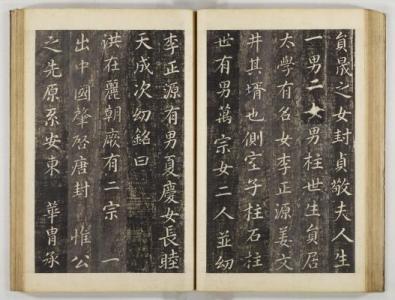 貟晟之女封貞敬夫人生
一男二女男柱世生貟居
太學有名女李正源姜文
井其壻也側室子柱石柱
世有男萬宗女二人並幼
李正源有男夏慶女長睦
天成次幼銘曰
洪在麗朝厥有二宗 一
出中國肇啓唐封 惟公
之先原系安東 華胄承